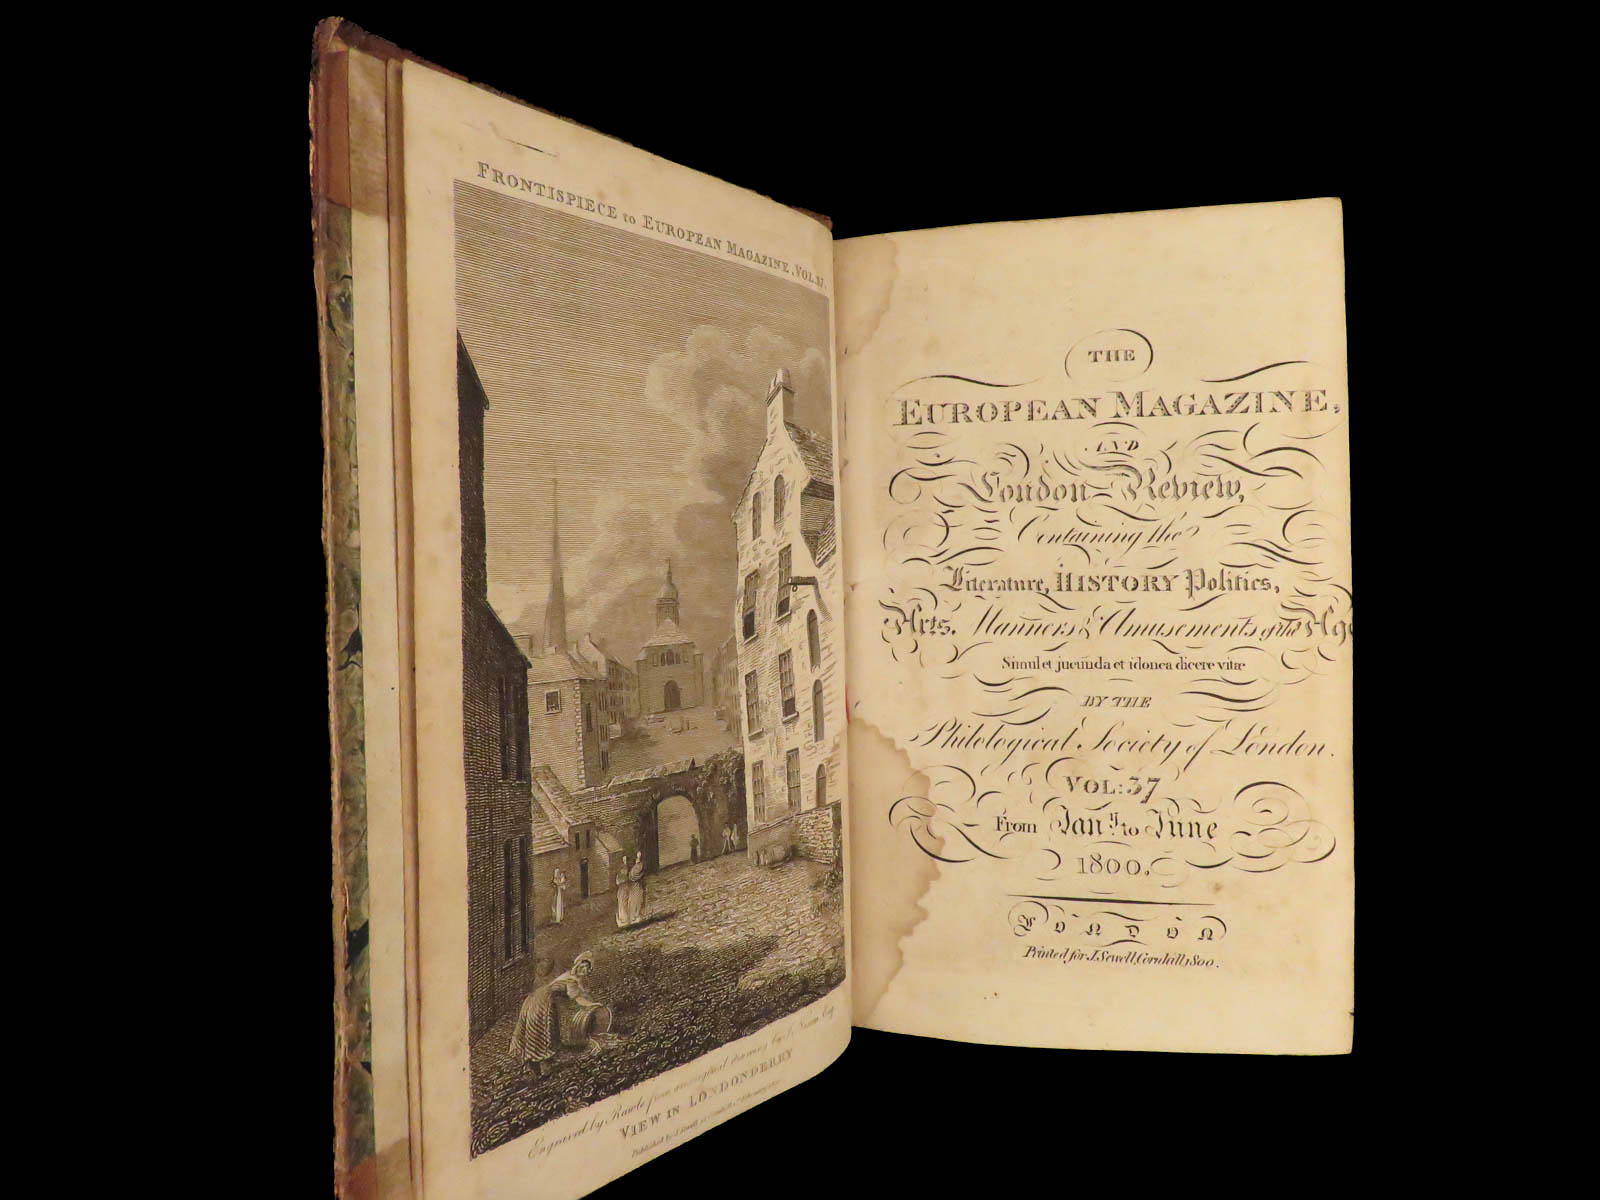 FRONTISPIECE to EUROPEAN MAGAZINE, VOL. 37.
Engraved by Rawle from an original drawing by J. Nixon Esq.
VIEW IN LONDONDERRY
Published by J. Sewell
THE
EUROPEAN MAGAZINE,
AND
London Review,
Containing the
Literature, HISTORY Politics,
Arts. Manners & Amusements of the Age
Simul et jucunda et idonea dicere vitæ
BY THE
Philological Society of London.
VOL: 37
From Jany. to June
1800.
LONDON
Printed for J. Sewell, Cornhill, 1800.